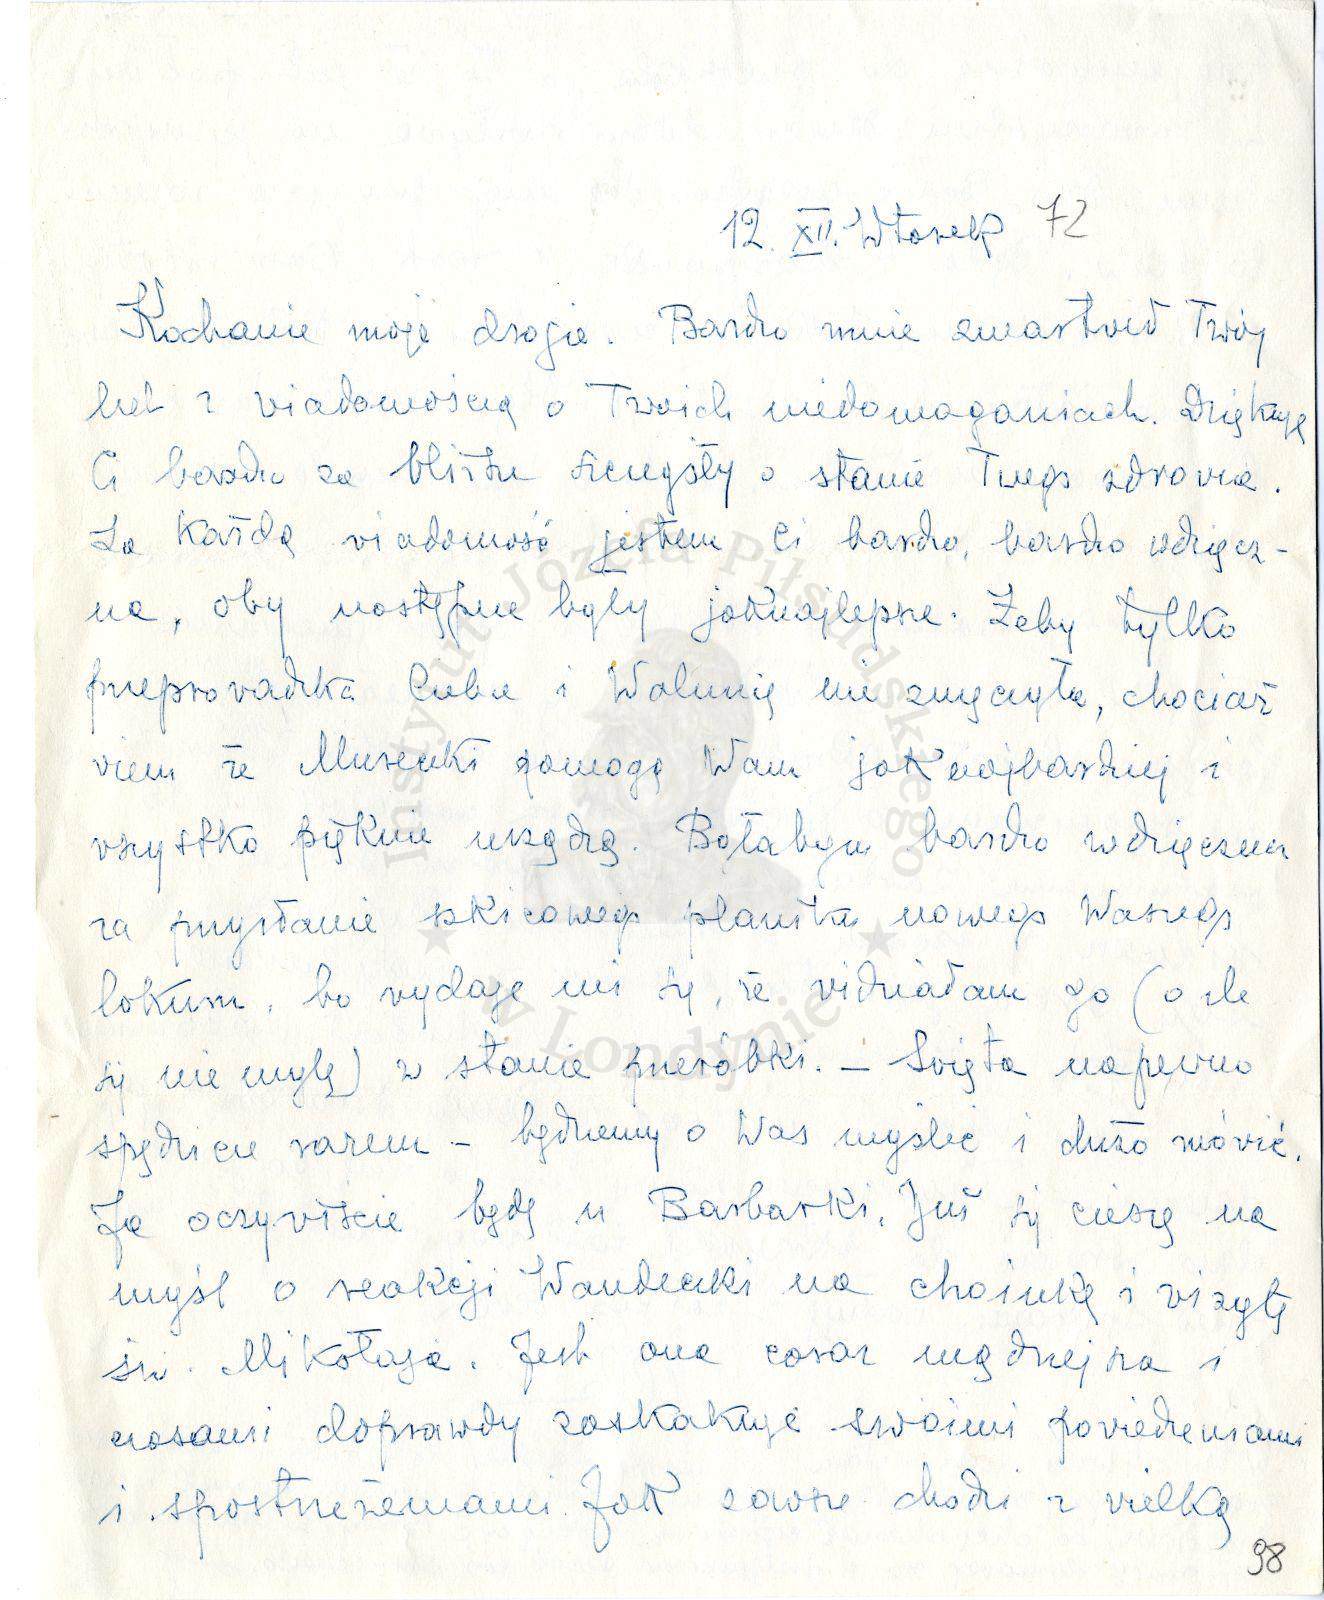 12. XII. Wtorek 72
Kochanie moje drogie. Bardzo mnie zmartwił Twój
list z wiadomością o Twoich niedomaganiach. Dziękuję
Ci bardzo za bliższe szczegóły o stanie Twego zdrowia.
Za każdą wiadomość jestem Ci bardzo, bardzo wdzięcz-
na, oby następne były jaknajlepsze. Żeby tylko
przeprowadzka Ciebie i Walunię nie zmęczyła, chociaż
wiem że pomogą Wam jaknajbardziej i
wszystko pięknie urządzą. Byłabym bardzo wdzięczna
za przysłanie szkicowego planiku nowego Waszego
lokum, bo wydaje mi się, że widziałam go (o ile
się nie mylę) w stanie przeróbki. – Święta napewno
spędzicie razem – będziemy o Was myśleć i dużo mówić.
Ja oczywiście będę u Barbarki. Już się cieszę na
myśl o reakcji Wandeczki na choinkę i wizytę
św. Mikołaja. Jest ona coraz mądrzejsza i
czasami doprawdy zaskakuje swoimi powiedzeniami
i spostrzeżeniami. Jak zawsze chodzi z wielką
98
Instytut Józefa Piłsudskiego
w Londynie